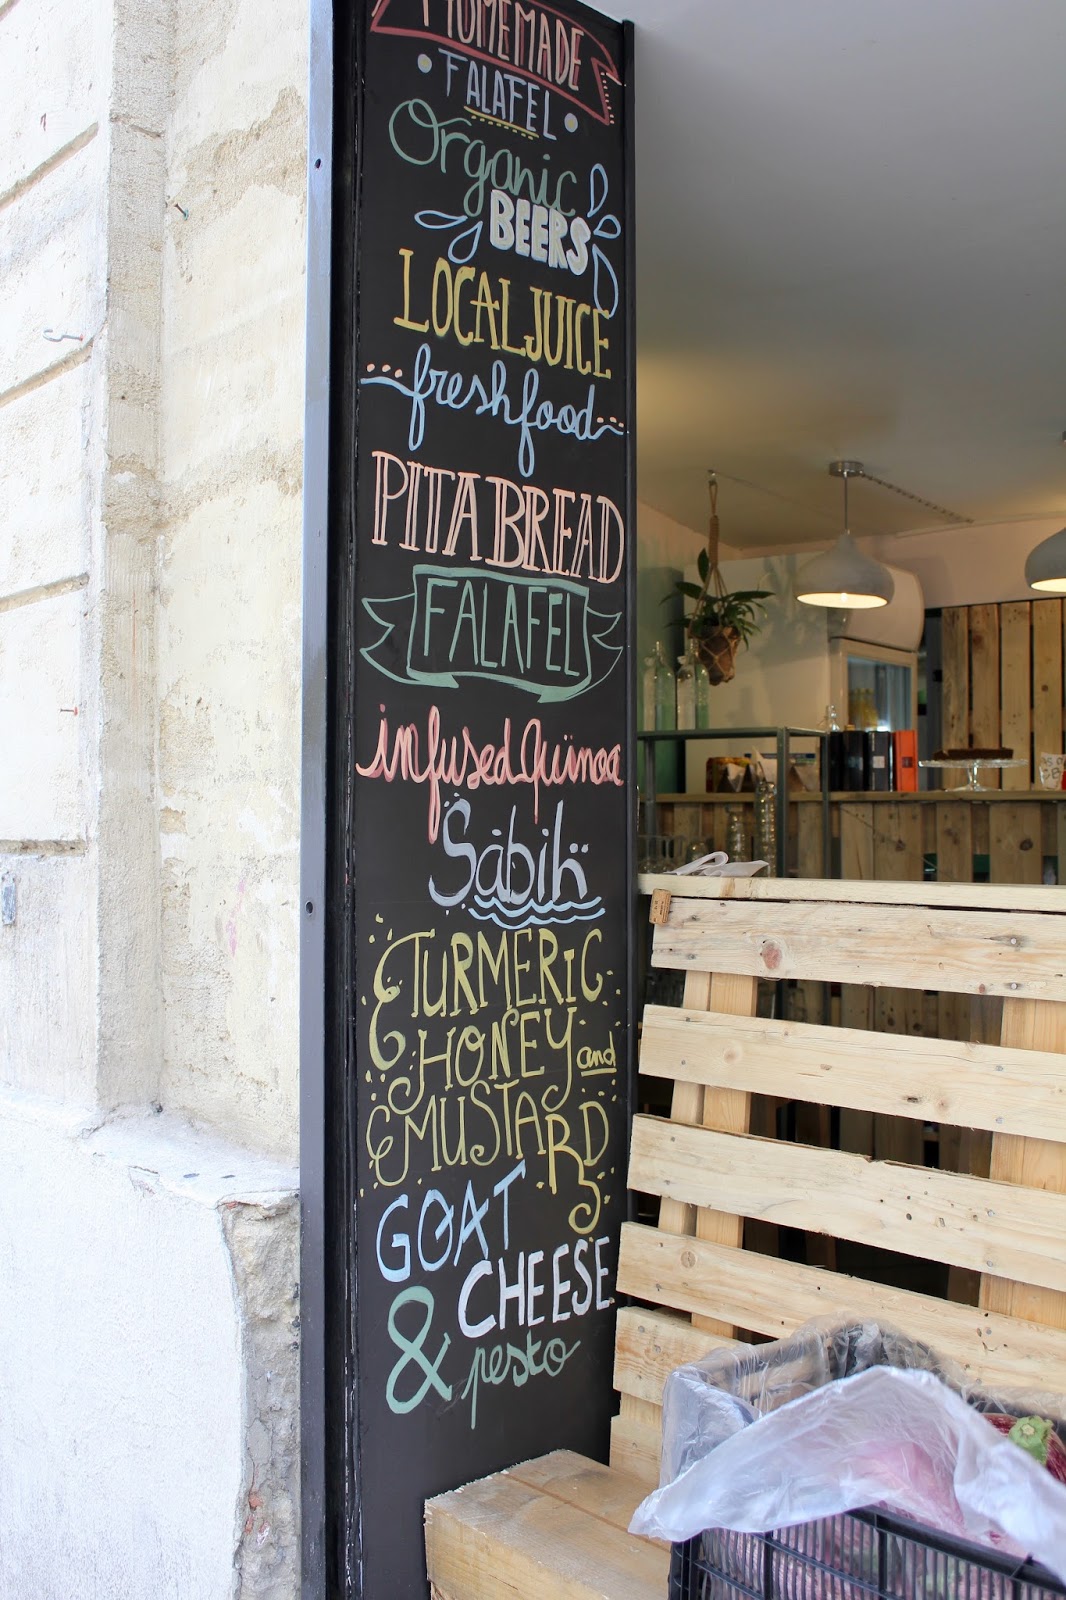 HOMEMADE
FALAFEL
Organic
BEERS
LOCAL JUICE
fresh food
PITA BREAD
FALAFEL
infused Quinoa
Sabih
TURMERIC
HONEY and
MUSTARD
GOAT
CHEESE
& pesto